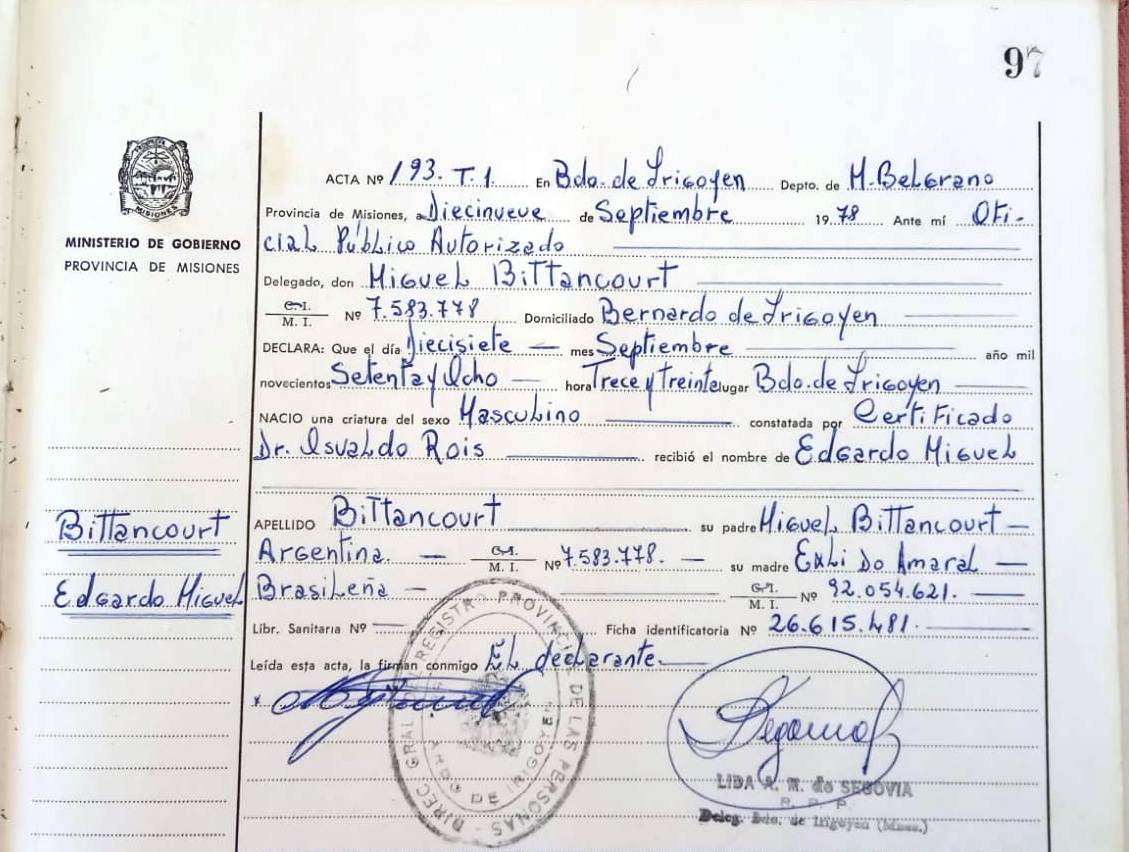 97
ACTA Nº 193. T. 1. En Bdo. de Irigoyen Depto. de M. Belgrano
Provincia de Misiones, a Diecinueve de Septiembre 1978 Ante mí Ofi-
cial Público Autorizado
MISIONES
MINISTERIO DE GOBIERNO
PROVINCIA DE MISIONES
Delegado, don Miguel Bittancourt
C.I.
M. I. Nº 7.583.778 Domiciliado Bernardo de Irigoyen
DECLARA: Que el día Diecisiete — mes Septiembre año mil
novecientos Setenta y Ocho — hora Trece y Treinta lugar Bdo. de Irigoyen
NACIO una criatura del sexo Masculino constatada por Certificado
Dr. Osvaldo Rois recibió el nombre de Edgardo Miguel
Bittancourt
Edgardo Miguel
APELLIDO Bittancourt su padre Miguel Bittancourt —
Argentina. — C.I.
M. I. Nº 7.583.778. — su madre Exli Do Amaral —
Brasileña — C.I.
M. I. Nº 92.054.621. —
Libr. Sanitaria Nº — Ficha identificatoria Nº 26.615.481. —
Leída esta acta, la firman conmigo El declarante —
DIREC. GRAL. DEL REGISTRO PROVINCIAL DE LAS PERSONAS
DE IRIGOYEN
LIDA A. M. de SEGOVIA
R. P. P.
Deleg. Bdo. de Irigoyen (Mnes.)